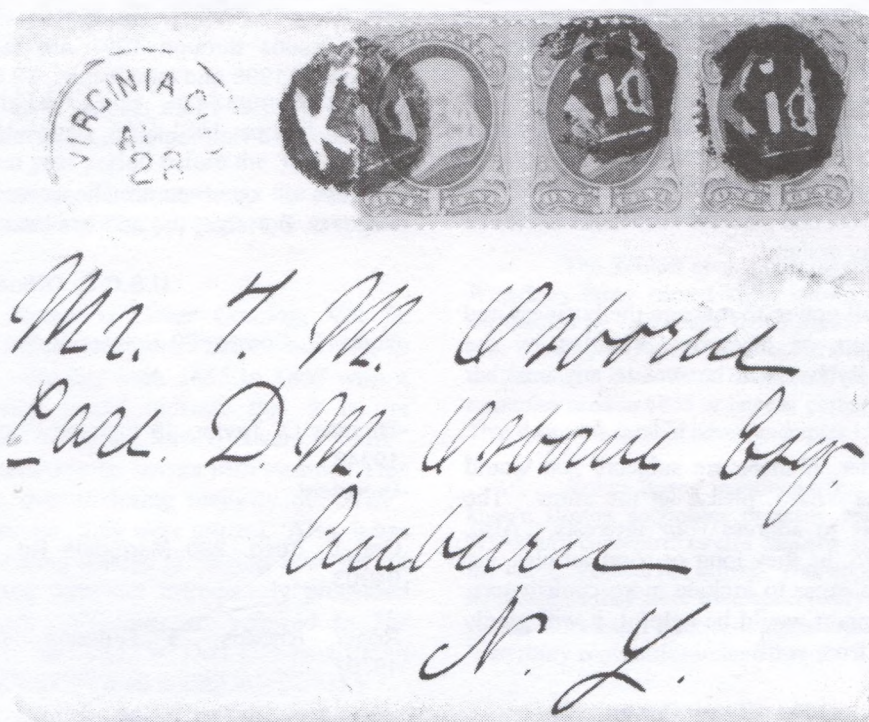 VIRGINIA CI
28
K
Mr. T. M. Osborne
Care. D. M. Osborne Esq.
Auburn
N. Y.